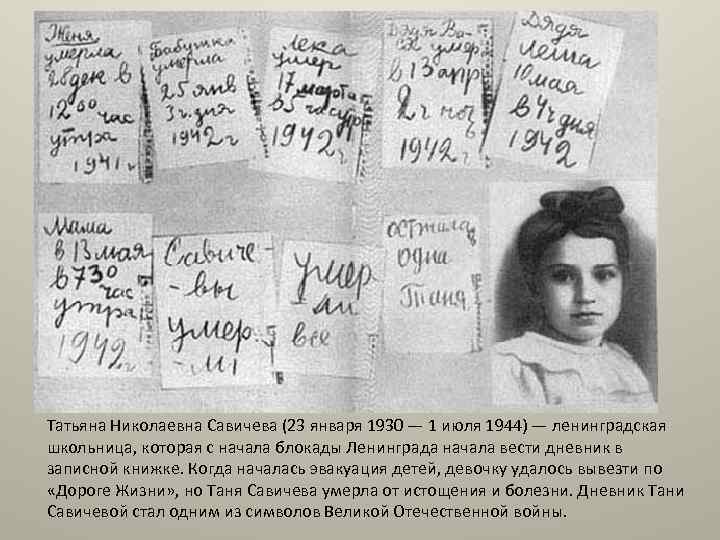 Женя
умерла
28 дек в
12 00 час
утра
1941 г
Бабушка
умерла
25 янв
3 ч. дня
1942 г
Лека
умер
17 марта
в 5 час утр
1942 г
Дядя Ва-
ся умер
в 13 апр
2 ч ноч
1942 г
Дядя
Леша
10 мая
в 4 ч дня
1942
Мама
в 13 мая
в 7 30
час
утра
1942 г
Савиче-
-вы
умер-
-ли
умер
-ли
все
осталась
одна
Таня
Татьяна Николаевна Савичева (23 января 1930 — 1 июля 1944) — ленинградская
школьница, которая с начала блокады Ленинграда начала вести дневник в
записной книжке. Когда началась эвакуация детей, девочку удалось вывезти по
«Дороге Жизни», но Таня Савичева умерла от истощения и болезни. Дневник Тани
Савичевой стал одним из символов Великой Отечественной войны.